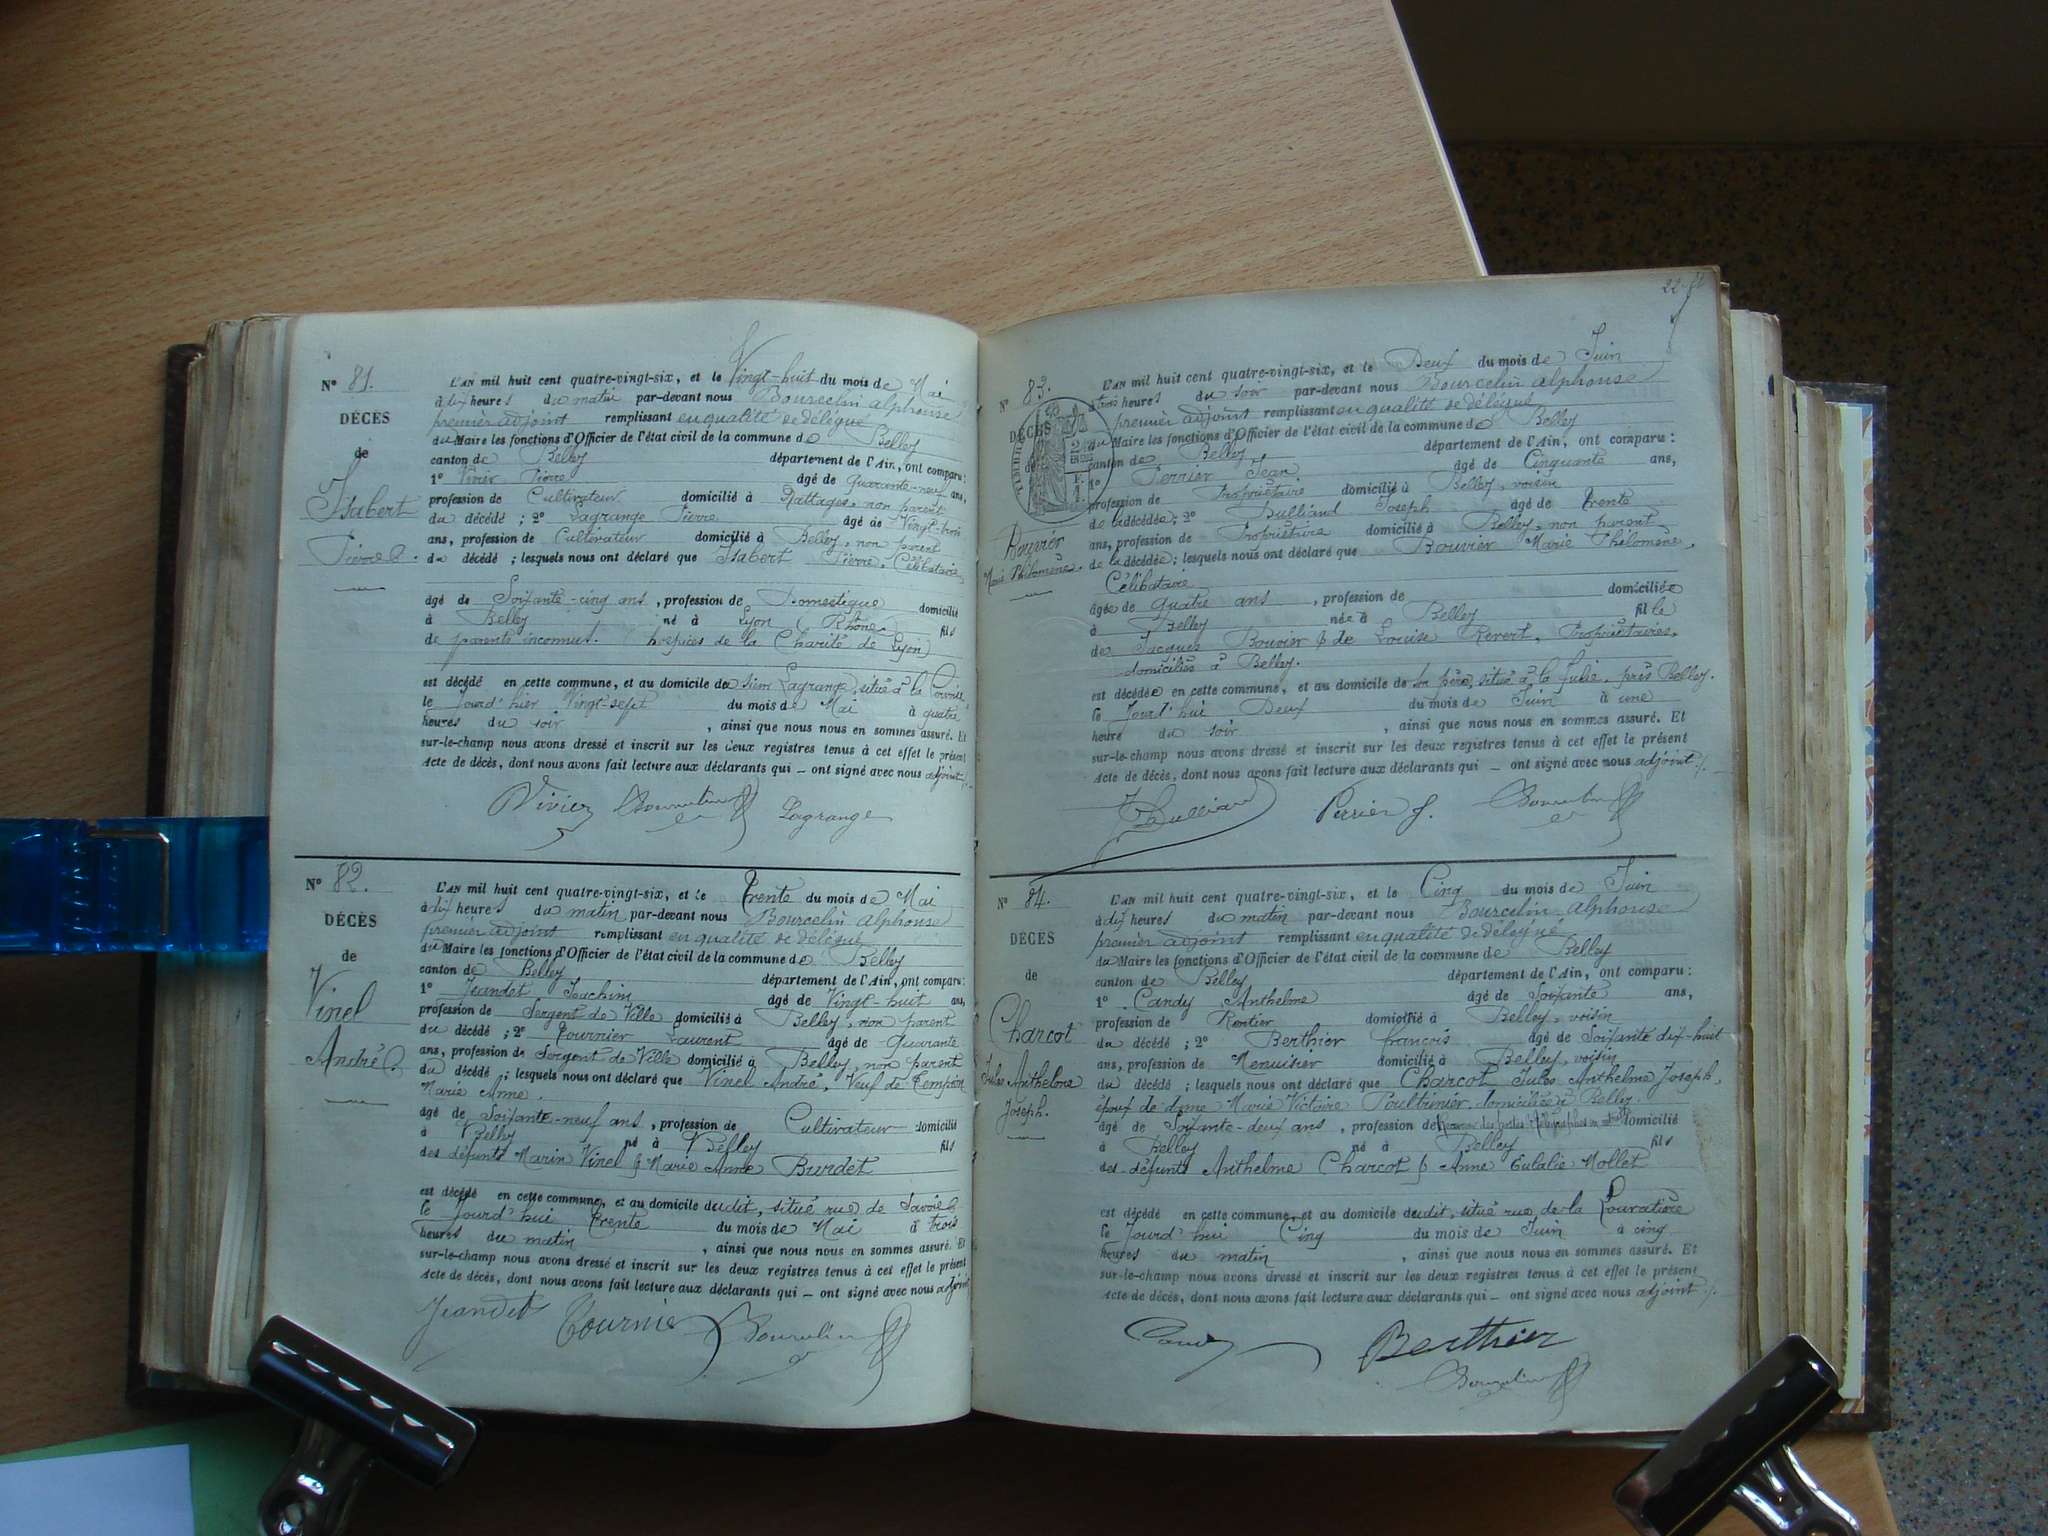 N° 81.
DÉCÈS
de
Isabert
Pierre
L'AN mil huit cent quatre-vingt-six, et le Vingt-huit du mois de Mai
à dix heures du matin par-devant nous Bourcelin Alphonse
premier adjoint remplissant en qualité de délégué
du Maire les fonctions d'Officier de l'état civil de la commune de Belley
canton de Belley département de l'Ain, ont comparu :
1° Vivier Pierre âgé de Quarante-neuf ans,
profession de Cultivateur domicilié à Nattages, non parent
du décédé ; 2° Lagrange Pierre âgé de Vingt-trois
ans, profession de Cultivateur domicilié à Belley, non parent
du décédé ; lesquels nous ont déclaré que Isabert Pierre, Célibataire,
âgé de Soixante-cinq ans, profession de Domestique domicilié
à Belley né à Lyon (Rhône) fils
de parents inconnus. hospices de la Charité de Lyon)
est décédé en cette commune, et au domicile de sieur Lagrange, situé à la
le Jourd'hier Vingt-sept du mois de Mai à quatre
heures du soir, ainsi que nous nous en sommes assuré. Et
sur-le-champ nous avons dressé et inscrit sur les deux registres tenus à cet effet le présent
acte de décès, dont nous avons fait lecture aux déclarants qui — ont signé avec nous adjoint.
Vivier Bourcelin Lagrange
N° 82.
DÉCÈS
de
Vinel
André
L'AN mil huit cent quatre-vingt-six, et le Trente du mois de Mai
à dix heures du matin par-devant nous Bourcelin Alphonse
premier adjoint remplissant en qualité de délégué
du Maire les fonctions d'Officier de l'état civil de la commune de Belley
canton de Belley département de l'Ain, ont comparu :
1° Jeandet Joachim âgé de Vingt-huit ans,
profession de Sergent de Ville domicilié à Belley, non parent
du décédé ; 2° Tournier Laurent âgé de Quarante
ans, profession de Sergent de Ville domicilié à Belley, non parent
du décédé ; lesquels nous ont déclaré que Vinel André, Veuf de Tempoin
Marie Anne.
âgé de Soixante-neuf ans, profession de Cultivateur domicilié
à Belley né à Belley fils
des défunts Marin Vinel & Marie Anne Burdet
est décédé en cette commune, et au domicile dudit, situé rue de Savoie
le Jourd'hui Trente du mois de Mai à trois
heures du matin, ainsi que nous nous en sommes assuré. Et
sur-le-champ nous avons dressé et inscrit sur les deux registres tenus à cet effet le présent
acte de décès, dont nous avons fait lecture aux déclarants qui — ont signé avec nous adjoint
Jeandet Tournier Bourcelin
22
N° 83.
DÉCÈS
de
Bouvier
Marie Philomène.
L'AN mil huit cent quatre-vingt-six, et le Deux du mois de Juin
à trois heures du soir par-devant nous Bourcelin Alphonse
premier adjoint remplissant en qualité de délégué
du Maire les fonctions d'Officier de l'état civil de la commune de Belley
canton de Belley département de l'Ain, ont comparu :
1° Perrier Jean âgé de Cinquante ans,
profession de Propriétaire domicilié à Belley, voisin
de la décédée ; 2° Dulliand Joseph âgé de Trente
ans, profession de Propriétaire domicilié à Belley, non parent
de la décédée ; lesquels nous ont déclaré que Bouvier Marie Philomène,
Célibataire
âgée de quatre ans, profession de domiciliée
à Belley née à Belley fille
de Jacques Bouvier & de Louise Revert, Propriétaires,
domiciliés à Belley.
est décédée en cette commune, et au domicile de son père, situé à la Julie, près Belley.
le Jourd'hui Deux du mois de Juin à une
heure du soir, ainsi que nous nous en sommes assuré. Et
sur-le-champ nous avons dressé et inscrit sur les deux registres tenus à cet effet le présent
acte de décès, dont nous avons fait lecture aux déclarants qui — ont signé avec nous adjoint.
J Dulliand Perrier J. Bourcelin
N° 84.
DÉCÈS
de
Charcot
Jules Anthelme
Joseph.
L'AN mil huit cent quatre-vingt-six, et le Cinq du mois de Juin
à dix heures du matin par-devant nous Bourcelin Alphonse
premier adjoint remplissant en qualité de délégué
du Maire les fonctions d'Officier de l'état civil de la commune de Belley
canton de Belley département de l'Ain, ont comparu :
1° Candy Anthelme âgé de Soixante ans,
profession de Rentier domicilié à Belley, voisin
du décédé ; 2° Berthier françois âgé de Soixante dix-huit
ans, profession de Menuisier domicilié à Belley, voisin
du décédé ; lesquels nous ont déclaré que Charcot Jules Anthelme Joseph,
époux de dame Marie Victoire Poultrinier, domiciliée à Belley.
âgé de Soixante-deux ans, profession de des postes & télégraphes en domicilié
à Belley né à Belley fils
des défunts Anthelme Charcot & Anne Eulalie Mollet
est décédé en cette commune, et au domicile dudit, situé rue de la
le Jourd'hui Cinq du mois de Juin à cinq
heures du matin, ainsi que nous nous en sommes assuré. Et
sur-le-champ nous avons dressé et inscrit sur les deux registres tenus à cet effet le présent
acte de décès, dont nous avons fait lecture aux déclarants qui — ont signé avec nous adjoint.
Candy Berthier
Bourcelin